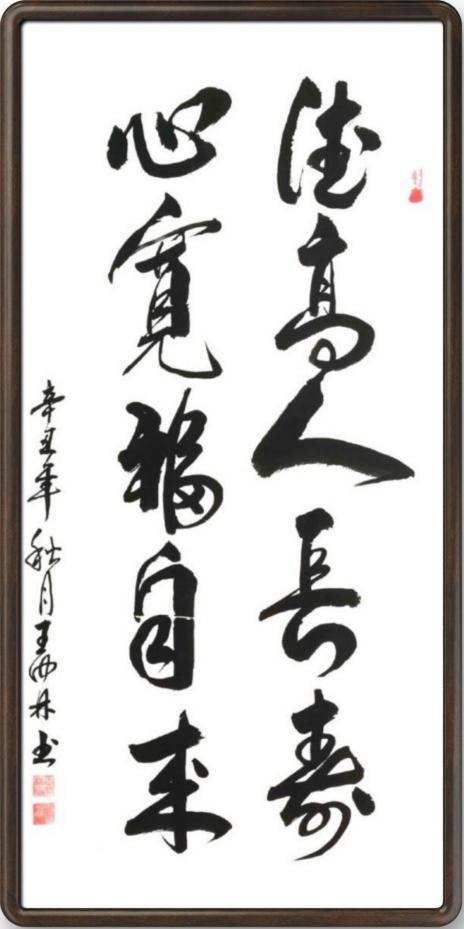 德高人長寿
心寬福自来
辛丑年秋月王西林书